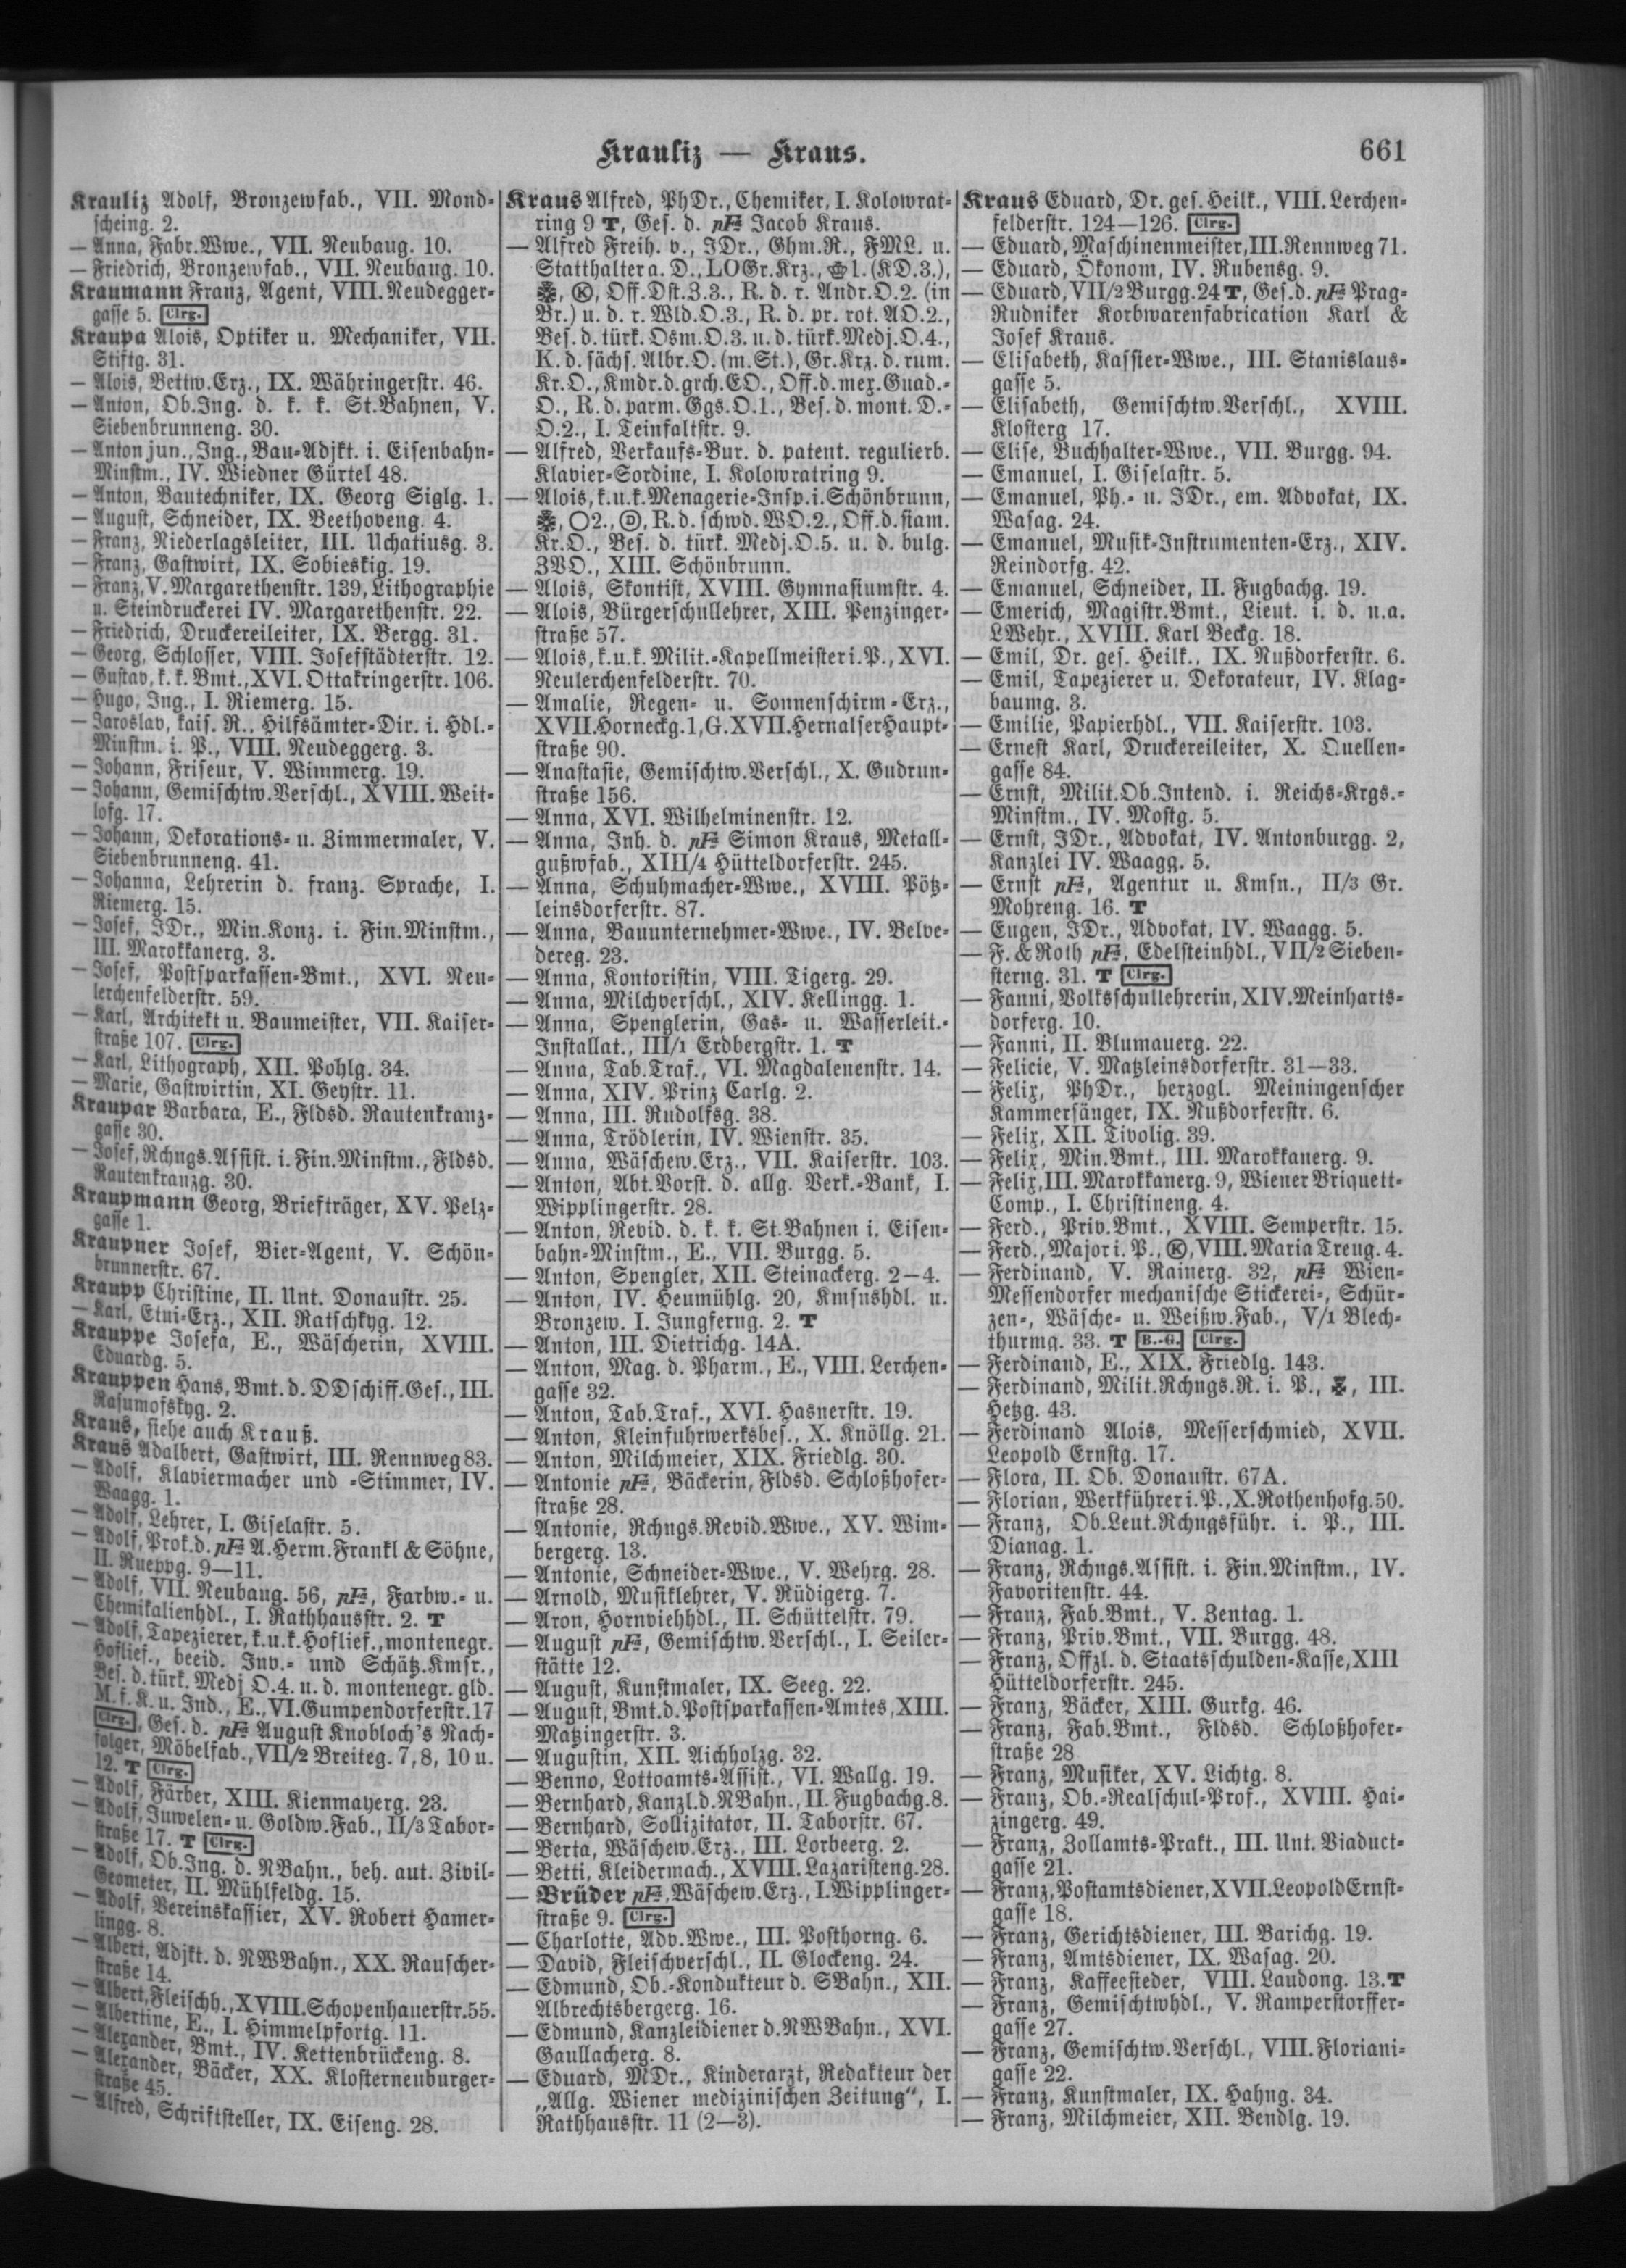 Krauliz — Kraus.
661
Krauliz Adolf, Bronzewfab., VII. Mond-
scheing. 2.
— Anna, Fabr.Wwe., VII. Neubaug. 10.
— Friedrich, Bronzewfab., VII. Neubaug. 10.
Kraumann Franz, Agent, VIII. Neudegger-
gasse 5. Clrg.
Kraupa Alois, Optiker u. Mechaniker, VII.
Stiftg. 31.
— Alois, Bettw.Erz., IX. Währingerstr. 46.
— Anton, Ob.Ing. d. k. k. St.Bahnen, V.
Siebenbrunneng. 30.
— Anton jun., Ing., Bau-Adjkt. i. Eisenbahn-
Minstm., IV. Wiedner Gürtel 48.
— Anton, Bautechniker, IX. Georg Siglg. 1.
— August, Schneider, IX. Beethoveng. 4.
— Franz, Niederlagsleiter, III. Uchatiusg. 3.
— Franz, Gastwirt, IX. Sobieskig. 19.
— Franz, V. Margarethenstr. 139, Lithographie
u. Steindruckerei IV. Margarethenstr. 22.
— Friedrich, Druckereileiter, IX. Bergg. 31.
— Georg, Schlosser, VIII. Josefstädterstr. 12.
— Gustav, k. k. Bmt., XVI. Ottakringerstr. 106.
— Hugo, Ing., I. Riemerg. 15.
— Jaroslav, kais. R., Hilfsämter-Dir. i. Hdl.-
Minstm. i. P., VIII. Neudeggerg. 3.
— Johann, Friseur, V. Wimmerg. 19.
— Johann, Gemischtw.Verschl., XVIII. Weit-
lofg. 17.
— Johann, Dekorations- u. Zimmermaler, V.
Siebenbrunneng. 41.
— Johanna, Lehrerin d. franz. Sprache, I.
Riemerg. 15.
— Josef, JDr., Min.Konz. i. Fin.Minstm.,
III. Marokkanerg. 3.
— Josef, Postsparkassen-Bmt., XVI. Neu-
lerchenfelderstr. 59.
— Karl, Architekt u. Baumeister, VII. Kaiser-
straße 107. Clrg.
— Karl, Lithograph, XII. Pohlg. 34.
— Marie, Gastwirtin, XI. Geystr. 11.
Kraupar Barbara, E., Fldsd. Rautenkranz-
gasse 30.
— Josef, Rchngs.Assist. i. Fin.Minstm., Fldsd.
Rautenkranzg. 30.
Kraupmann Georg, Briefträger, XV. Pelz-
gasse 1.
Kraupner Josef, Bier-Agent, V. Schön-
brunnerstr. 67.
Kraupp Christine, II. Unt. Donaustr. 25.
— Karl, Etui-Erz., XII. Ratschkyg. 12.
Krauppe Josefa, E., Wäscherin, XVIII.
Eduardg. 5.
Krauppen Hans, Bmt. d. DDschiff.Ges., III.
Rasumofskyg. 2.
Kraus, siehe auch Krauß.
Kraus Adalbert, Gastwirt, III. Rennweg 83.
— Adolf, Klaviermacher und -Stimmer, IV.
Waagg. 1.
— Adolf, Lehrer, I. Giselastr. 5.
— Adolf, Prok. d. pFa A. Herm. Frankl & Söhne,
II. Rueppg. 9—11.
— Adolf, VII. Neubaug. 56, pFa, Farbw.- u.
Chemikalienhdl., I. Rathhausstr. 2. T
— Adolf, Tapezierer, k.u.k. Hoflief., montenegr.
Hoflief., beeid. Inv.- und Schätz.Kmsr.,
Bes. d. türk. Medj O.4. u. d. montenegr. gld.
M. f. K. u. Ind., E., VI. Gumpendorferstr. 17
Clrg., Ges. d. pFa August Knobloch's Nach-
folger, Möbelfab., VII/2 Breiteg. 7, 8, 10 u.
12. T Clrg.
— Adolf, Färber, XIII. Kienmayerg. 23.
— Adolf, Juwelen- u. Goldw.Fab., II/3 Tabor-
straße 17. T Clrg.
— Adolf, Ob.Ing. d. NBahn., beh. aut. Zivil-
Geometer, II. Mühlfeldg. 15.
— Adolf, Vereinskassier, XV. Robert Hamer-
lingg. 8.
— Albert, Adjkt. d. NWBahn., XX. Rauscher-
straße 14.
— Albert, Fleischh., XVIII. Schopenhauerstr. 55.
— Albertine, E., I. Himmelpfortg. 11.
— Alexander, Bmt., IV. Kettenbrückeng. 8.
— Alexander, Bäcker, XX. Klosterneuburger-
straße 45.
— Alfred, Schriftsteller, IX. Eiseng. 28.
Kraus Alfred, PhDr., Chemiker, I. Kolowrat-
ring 9 T, Ges. d. pFa Jacob Kraus.
— Alfred Freih. v., JDr., Ghm.R., FML. u.
Statthalter a. D., LOGr.Krz., 1. (KD.3.),
K, Off.Dst.Z.3., R. d. r. Andr.O.2. (in
Br.) u. d. r. Wld.O.3., R. d. pr. rot. AO.2.,
Bes. d. türk. Osm.O.3. u. d. türk. Medj.O.4.,
K. d. sächs. Albr.O. (m. St.), Gr.Krz. d. rum.
Kr.O., Kmdr. d. grch. EO., Off. d. mex. Guad.-
O., R. d. parm. Ggs.O.1., Bes. d. mont. D.-
O.2., I. Teinfaltstr. 9.
— Alfred, Verkaufs-Bur. d. patent. regulierb.
Klavier-Sordine, I. Kolowratring 9.
— Alois, k.u.k. Menagerie-Insp. i. Schönbrunn,
O2., D, R. d. schwd. WO.2., Off. d. siam.
Kr.O., Bes. d. türk. Medj.O.5. u. d. bulg.
ZVO., XIII. Schönbrunn.
— Alois, Skontist, XVIII. Gymnasiumstr. 4.
— Alois, Bürgerschullehrer, XIII. Penzinger-
straße 57.
— Alois, k.u.k. Milit.-Kapellmeister i. P., XVI.
Neulerchenfelderstr. 70.
— Amalie, Regen- u. Sonnenschirm-Erz.,
XVII. Horneckg. 1, G. XVII. Hernalser Haupt-
straße 90.
— Anastasie, Gemischtw.Verschl., X. Gudrun-
straße 156.
— Anna, XVI. Wilhelminenstr. 12.
— Anna, Inh. d. pFa Simon Kraus, Metall-
gußwfab., XIII/4 Hütteldorferstr. 245.
— Anna, Schuhmacher-Wwe., XVIII. Pötz-
leinsdorferstr. 87.
— Anna, Bauunternehmer-Wwe., IV. Belve-
dereg. 23.
— Anna, Kontoristin, VIII. Tigerg. 29.
— Anna, Milchverschl., XIV. Kellingg. 1.
— Anna, Spenglerin, Gas- u. Wasserleit.-
Installat., III/1 Erdbergstr. 1. T
— Anna, Tab.Traf., VI. Magdalenenstr. 14.
— Anna, XIV. Prinz Carlg. 2.
— Anna, III. Rudolfsg. 38.
— Anna, Trödlerin, IV. Wienstr. 35.
— Anna, Wäschew.Erz., VII. Kaiserstr. 103.
— Anton, Abt.Vorst. d. allg. Verk.-Bank, I.
Wipplingerstr. 28.
— Anton, Revid. d. k. k. St.Bahnen i. Eisen-
bahn-Minstm., E., VII. Burgg. 5.
— Anton, Spengler, XII. Steinackerg. 2—4.
— Anton, IV. Heumühlg. 20, Kmsnshdl. u.
Bronzew. I. Jungferng. 2. T
— Anton, III. Dietrichg. 14A.
— Anton, Mag. d. Pharm., E., VIII. Lerchen-
gasse 32.
— Anton, Tab.Traf., XVI. Hasnerstr. 19.
— Anton, Kleinfuhrwerksbes., X. Knöllg. 21.
— Anton, Milchmeier, XIX. Friedlg. 30.
— Antonie pFa, Bäckerin, Fldsd. Schloßhofer-
straße 28.
— Antonie, Rchngs.Revid.Wwe., XV. Wim-
bergerg. 13.
— Antonie, Schneider-Wwe., V. Wehrg. 28.
— Arnold, Musiklehrer, V. Rüdigerg. 7.
— Aron, Hornviehhdl., II. Schüttelstr. 79.
— August pFa, Gemischtw.Verschl., I. Seiler-
stätte 12.
— August, Kunstmaler, IX. Seeg. 22.
— August, Bmt. d. Postsparkassen-Amtes, XIII.
Matzingerstr. 3.
— Augustin, XII. Aichholzg. 32.
— Benno, Lottoamts-Assist., VI. Wallg. 19.
— Bernhard, Kanzl. d. NBahn., II. Fugbachg. 8.
— Bernhard, Sollizitator, II. Taborstr. 67.
— Berta, Wäschew.Erz., III. Lorbeerg. 2.
— Betti, Kleidermach., XVIII. Lazaristeng. 28.
— Brüder pFa, Wäschew.Erz., I. Wipplinger-
straße 9. Clrg.
— Charlotte, Adv.Wwe., III. Posthorng. 6.
— David, Fleischverschl., II. Glockeng. 24.
— Edmund, Ob.-Kondukteur d. SBahn., XII.
Albrechtsbergerg. 16.
— Edmund, Kanzleidiener d. NWBahn., XVI.
Gaullacherg. 8.
— Eduard, MDr., Kinderarzt, Redakteur der
„Allg. Wiener medizinischen Zeitung“, I.
Rathhausstr. 11 (2—3).
Kraus Eduard, Dr. ges. Heilk., VIII. Lerchen-
felderstr. 124—126. Clrg.
— Eduard, Maschinenmeister, III. Rennweg 71.
— Eduard, Ökonom, IV. Rubensg. 9.
— Eduard, VII/2 Burgg. 24 T, Ges. d. pFa Prag-
Rudniker Korbwarenfabrication Karl &
Josef Kraus.
— Elisabeth, Kassier-Wwe., III. Stanislaus-
gasse 5.
— Elisabeth, Gemischtw.Verschl., XVIII.
Klosterg 17.
— Elise, Buchhalter-Wwe., VII. Burgg. 94.
— Emanuel, I. Giselastr. 5.
— Emanuel, Ph.- u. JDr., em. Advokat, IX.
Wasag. 24.
— Emanuel, Musik-Instrumenten-Erz., XIV.
Reindorfg. 42.
— Emanuel, Schneider, II. Fugbachg. 19.
— Emerich, Magistr.Bmt., Lieut. i. d. n.a.
LWehr., XVIII. Karl Beckg. 18.
— Emil, Dr. ges. Heilk., IX. Nußdorferstr. 6.
— Emil, Tapezierer u. Dekorateur, IV. Klag-
baumg. 3.
— Emilie, Papierhdl., VII. Kaiserstr. 103.
— Ernest Karl, Druckereileiter, X. Quellen-
gasse 84.
— Ernst, Milit.Ob.Intend. i. Reichs-Krgs.-
Minstm., IV. Mostg. 5.
— Ernst, JDr., Advokat, IV. Antonburgg. 2,
Kanzlei IV. Waagg. 5.
— Ernst pFa, Agentur u. Kmsn., II/3 Gr.
Mohreng. 16. T
— Eugen, JDr., Advokat, IV. Waagg. 5.
— F. & Roth pFa, Edelsteinhdl., VII/2 Sieben-
sterng. 31. T Clrg.
— Fanni, Volksschullehrerin, XIV. Meinharts-
dorferg. 10.
— Fanni, II. Blumauerg. 22.
— Felicie, V. Matzleinsdorferstr. 31—33.
— Felix, PhDr., herzogl. Meiningenscher
Kammersänger, IX. Nußdorferstr. 6.
— Felix, XII. Tivolig. 39.
— Felix, Min.Bmt., III. Marokkanerg. 9.
— Felix, III. Marokkanerg. 9, Wiener Briquett-
Comp., I. Christineng. 4.
— Ferd., Priv.Bmt., XVIII. Semperstr. 15.
— Ferd., Major i. P., K, VIII. Maria Treug. 4.
— Ferdinand, V. Rainerg. 32, pFa Wien-
Messendorfer mechanische Stickerei-, Schür-
zen-, Wäsche- u. Weißw.Fab., V/1 Blech-
thurmg. 33. T B.-G. Clrg.
— Ferdinand, E., XIX. Friedlg. 143.
— Ferdinand, Milit.Rchngs.R. i. P., III.
Hetzg. 43.
— Ferdinand Alois, Messerschmied, XVII.
Leopold Ernstg. 17.
— Flora, II. Ob. Donaustr. 67A.
— Florian, Werkführer i. P., X. Rothenhofg. 50.
— Franz, Ob.Leut.Rchngsführ. i. P., III.
Dianag. 1.
— Franz, Rchngs.Assist. i. Fin.Minstm., IV.
Favoritenstr. 44.
— Franz, Fab.Bmt., V. Zentag. 1.
— Franz, Priv.Bmt., VII. Burgg. 48.
— Franz, Offzl. d. Staatsschulden-Kasse, XIII
Hütteldorferstr. 245.
— Franz, Bäcker, XIII. Gurkg. 46.
— Franz, Fab.Bmt., Fldsd. Schloßhofer-
straße 28
— Franz, Musiker, XV. Lichtg. 8.
— Franz, Ob.-Realschul-Prof., XVIII. Hai-
zingerg. 49.
— Franz, Zollamts-Prakt., III. Unt. Viaduct-
gasse 21.
— Franz, Postamtsdiener, XVII. Leopold Ernst-
gasse 18.
— Franz, Gerichtsdiener, III. Barichg. 19.
— Franz, Amtsdiener, IX. Wasag. 20.
— Franz, Kaffeesieder, VIII. Laudong. 13. T
— Franz, Gemischtwhdl., V. Ramperstorffer-
gasse 27.
— Franz, Gemischtw.Verschl., VIII. Floriani-
gasse 22.
— Franz, Kunstmaler, IX. Hahng. 34.
— Franz, Milchmeier, XII. Bendlg. 19.